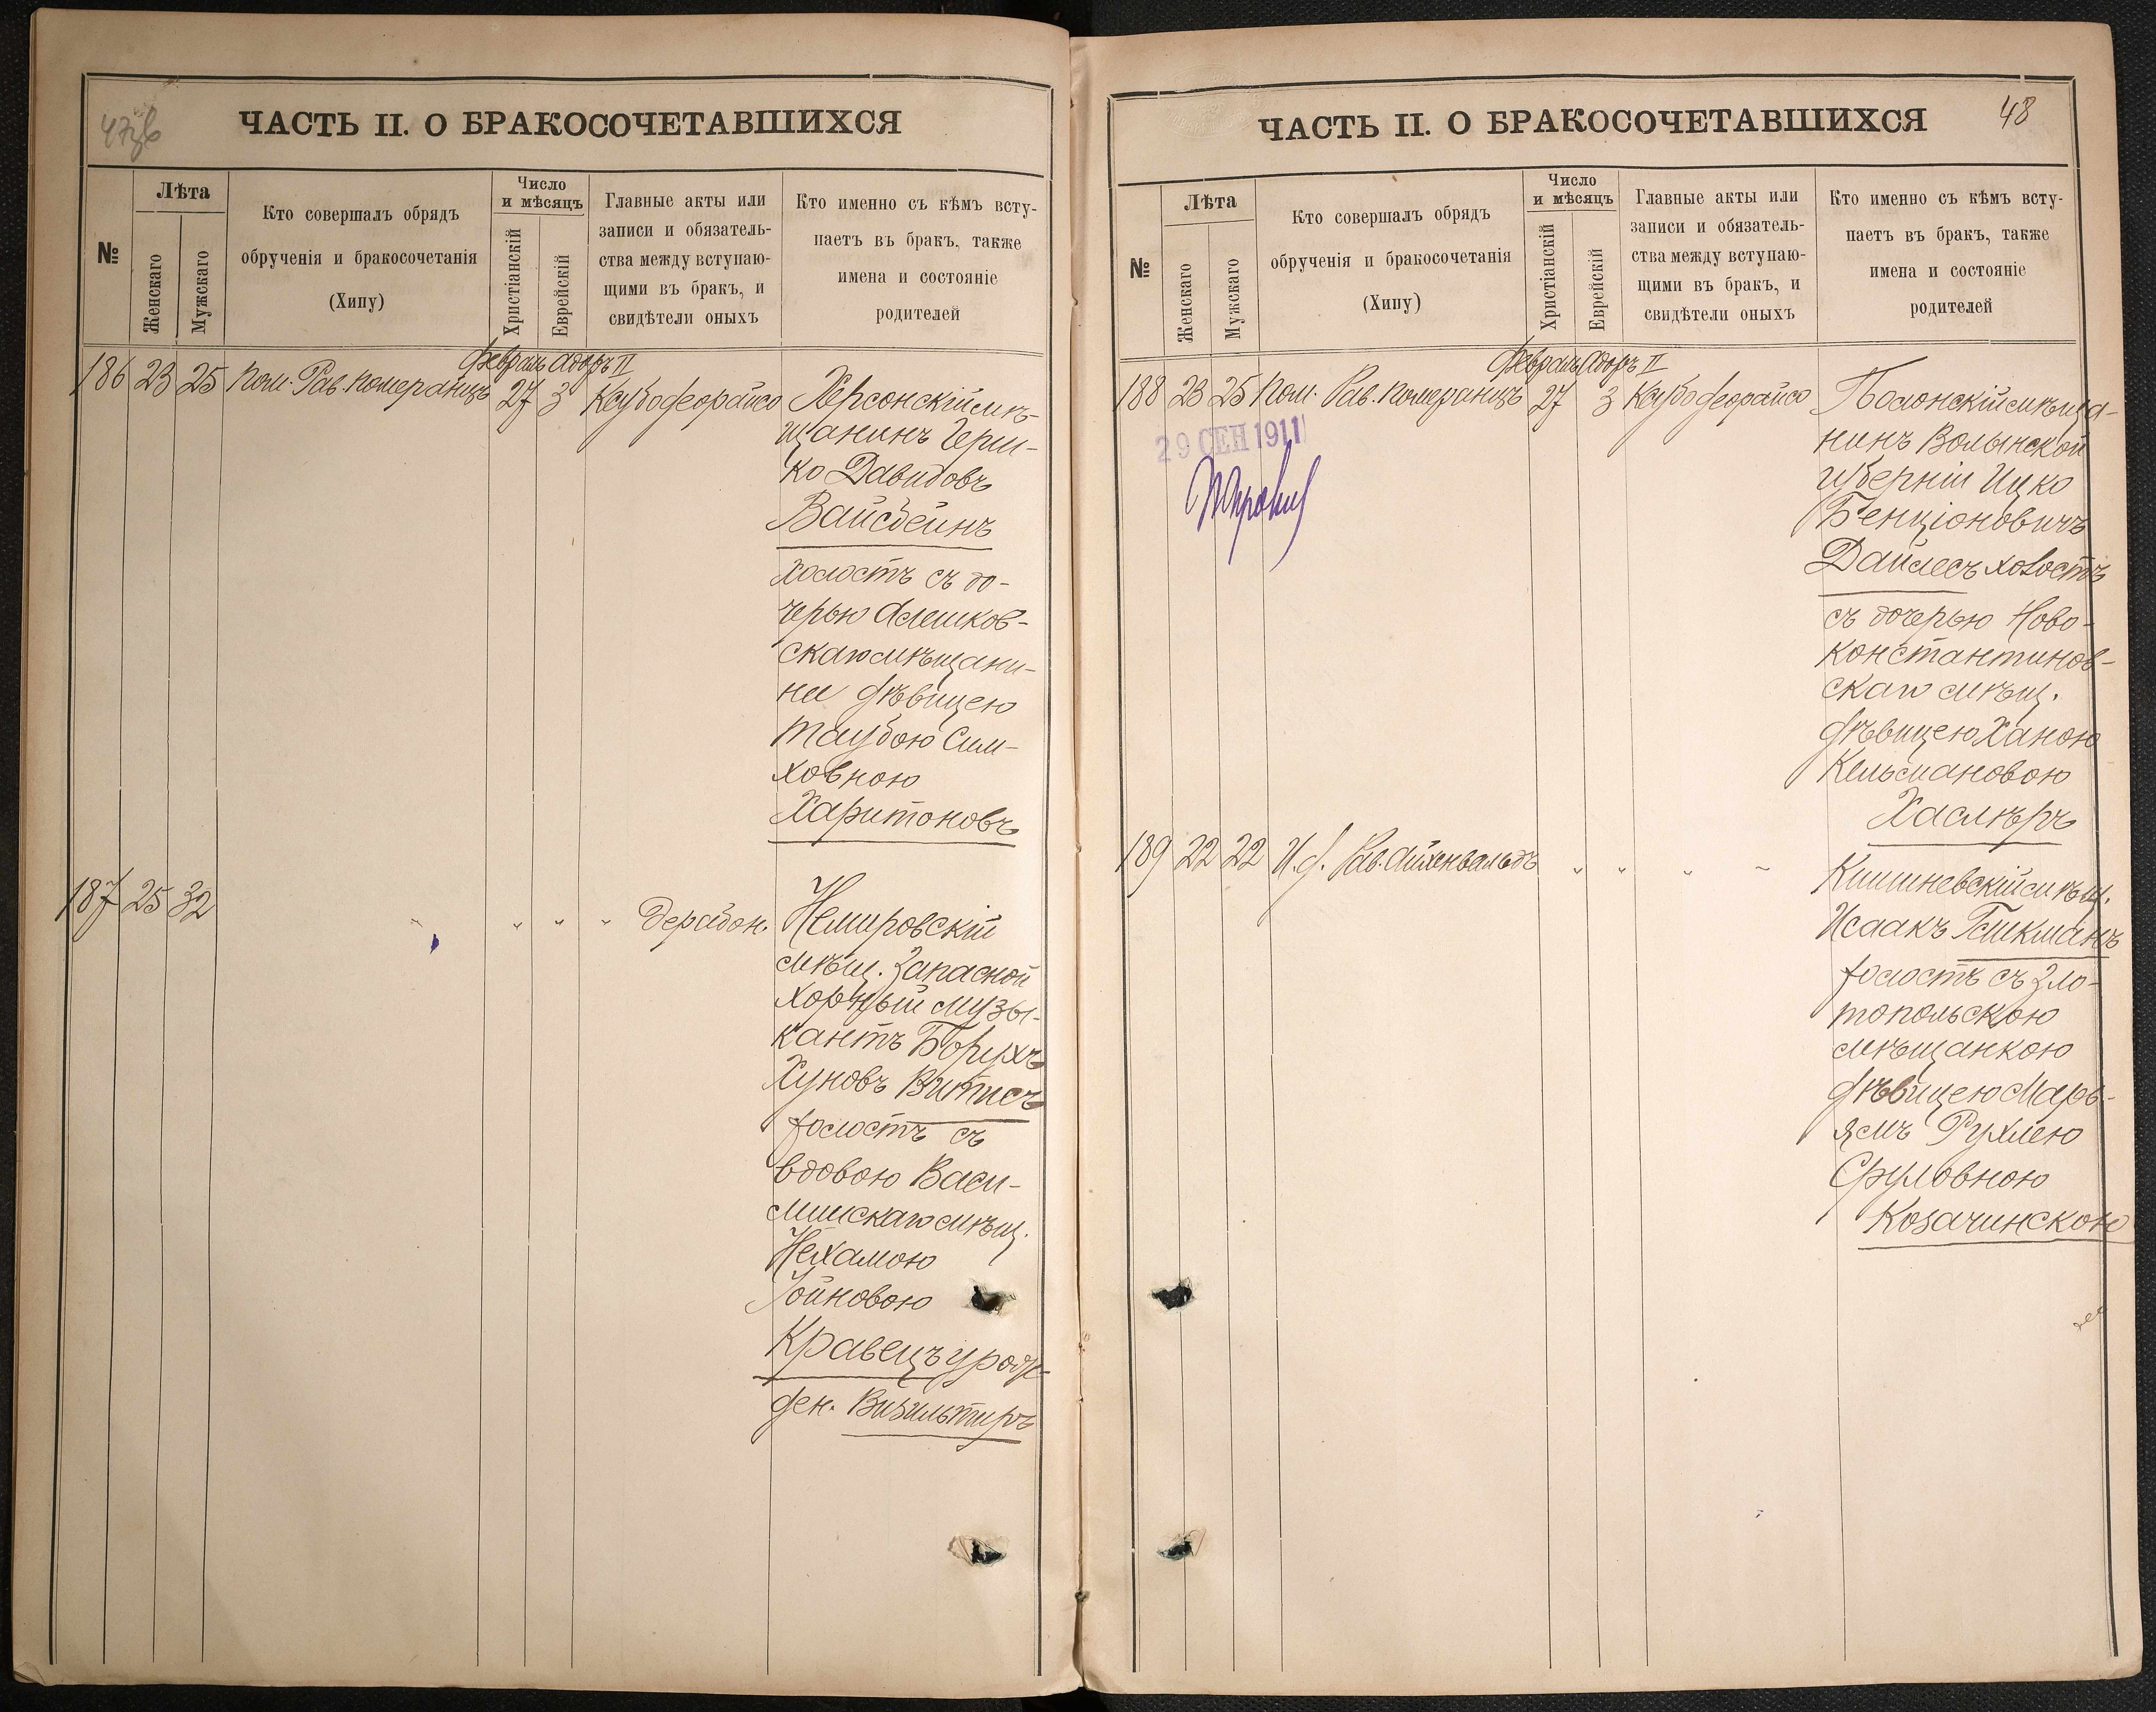 47об
ЧАСТЬ II. О БРАКОСОЧЕТАВШИХСЯ
№
Лѣта
Женскаго
Мужскаго
Кто совершалъ обрядъ
обрученія и бракосочетанія
(Хипу)
Число
и мѣсяцъ
Христіанскій
Еврейскій
Главные акты или
записи и обязатель-
ства между вступаю-
щими въ бракъ, и
свидѣтели оныхъ
Кто именно съ кѣмъ всту-
паетъ въ бракъ, также
имена и состояніе
родителей
Февраль Адоръ II
186 23 25 Пом. Рав. Померанцъ 27 3 Ксубофеорайсо Херсонскій мѣ-
щанинъ Герш-
ко Давидовъ
Вайсбейнъ
холостъ съ до-
черью Алешков-
скаго мѣщани-
на дѣвицею
Таубою Сим-
ховною
Харитоновъ
187 25 32 " " " " Дерабон. Немировскій
мѣщ. Запасной
хорный музы-
кантъ Борухъ
Хуновъ Витисъ
холостъ съ
вдовою Васи-
лишскаго мѣщ.
Нехамою
Іойновою
Кравецъ урож-
ден. Визильтиръ
ЧАСТЬ II. О БРАКОСОЧЕТАВШИХСЯ
48
№
Лѣта
Женскаго
Мужскаго
Кто совершалъ обрядъ
обрученія и бракосочетанія
(Хипу)
Число
и мѣсяцъ
Христіанскій
Еврейскій
Главные акты или
записи и обязатель-
ства между вступаю-
щими въ бракъ, и
свидѣтели оныхъ
Кто именно съ кѣмъ всту-
паетъ въ бракъ, также
имена и состояніе
родителей
Февраль Адоръ II
188 23 25 Пом. Рав. Померанцъ 27 3 Ксубофеорайсо Полонскій мѣща-
29 СЕН 1911
нинъ Волынской
губерніи Ицко
Бенціоновичъ
Дайлесъ холостъ
съ дочерью Ново-
константинов-
скаго мѣщ.
дѣвицею Ханою
Кельмановою
Хаслѣръ
189 22 22 И.д. Рав. Айхенвальдъ " " " " Кишиневскій мѣщ.
Исаакъ Гликманъ
холостъ съ Зло-
топольскою
мѣщанкою
дѣвицею Марь-
ямъ Рухлею
Сруловною
Козачинскою